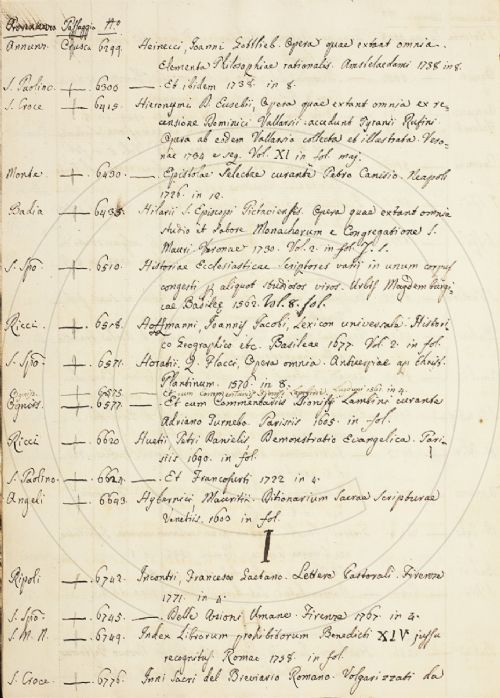 Provenienza Passaggio No
Annunz. Crusca 6299. Heinecci, Joanni Gottlieb. Opera quae extant omnia.
Elementa Philosophiae rationalis. Amstelaedami 1738 in 8.
S. Paolino. + .6300 —. Et ibidem 1738. in 8.
S. Croce + .6415. Hieronymi D. Eusebii, Opera quae extant omnia ex re-
censione Dominici Vallarsii: accedunt Tyranii Rufini
Opera ab eodem Vallarsio collecta et illustrata. Vero-
nae 1734 e seq. Vol. XI in fol. maj.
Monte. + .6430 —. Epistolae Selectae curante Petro Canisio. Neapoli
1726. in 12.
Badia + .6435. Hilarii S. Episcopi Pictaviensis. Opera quae extant omnia
studio et labore Monachorum e Congregatione S.
Mauri. Veronae 1730. Vol. 2. in fol.
S. Spo. + .6510. Historiae Ecclesiasticae Scriptores varii in unum corpus
congesti p aliquot studiosos viros. Urbis Magdemburgi-
cae Basileę 1562. Vol. 8. fol.
Ricci. + .6518. Hoffmanni, Joannis Jacobi, Lexicon universale. Histori-
co Geographico etc. Basileae 1677. Vol. 2. in fol.
S. Spo. + .6571. Horatii, Q. Flacci, Opera omnia. Antverpiae ap. Christ.
Plantinum. 1576. in 8.
6575. — Et cum commentariis Dionysi Lambini. in 4.
+ .6577. — Et cum Commentariis Dionysii Lambini curante
Adriano Turnebo. Parisiis 1605. in fol.
Ricci + .6620 Huetii Petri Danielis, Demonstratio Evangelica. Pari-
siis 1690. in fol.
S. Paolino. + .6624. —. Et Francofurti 1722 in 4.
Angeli + .6643. Hybernici Mauritii. Ditionarium Sacrae Scripturae
Venetiis. 1603 in fol.
I
Ripoli + .6742. Incontri, Francesco Gaetano. Lettere Pastorali. Firenze
1771. in 4.
S. Spo. + .6745. —. Delle Azioni Umane. Firenze 1767. in 4.
S. M. N. + .6749. Index Librorum prohibitorum Benedicti XIV jussu
recognitus. Romae 1758. in fol.
S. Croce + .6776. Inni Sacri del Breviario Romano. Volgarizzati da